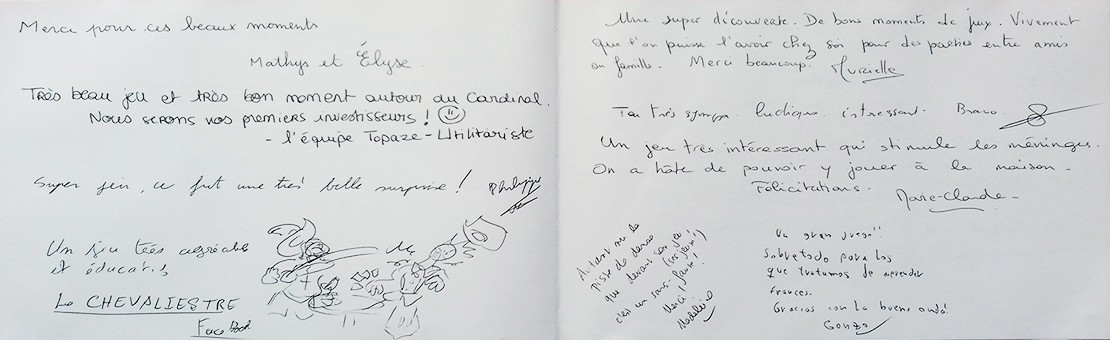 Merci pour ces beaux moments
Mathys et Élyse.
Très beau jeu et très bon moment autour du Cardinal.
Nous serons vos premiers investisseurs !
- l'équipe Topaze-Utilitariste
Super jeu, ce fut une très belle surprise ! Philippe
Un jeu très agréable
et éducatif,
La CHEVALIESTRE
FaceBook
Une super découverte. De bons moments de jeux. Vivement
que l'on puisse l'avoir chez soi pour des parties entre amis
ou famille. Merci beaucoup. Murielle
Jeu très sympa. ludique. intéressant. Bravo
Un jeu très intéressant qui stimule les méninges.
On a hâte de pouvoir y jouer à la maison.
Félicitations.
Marie-Claude
Autant sur la
piste de danse
que devant son jeu
c'est un sans-faute!
Merci,
Un gran juego!!
Sobretodo para los
que tratamos de aprender
frances.
Gracias con la buena onda!
Gonzo